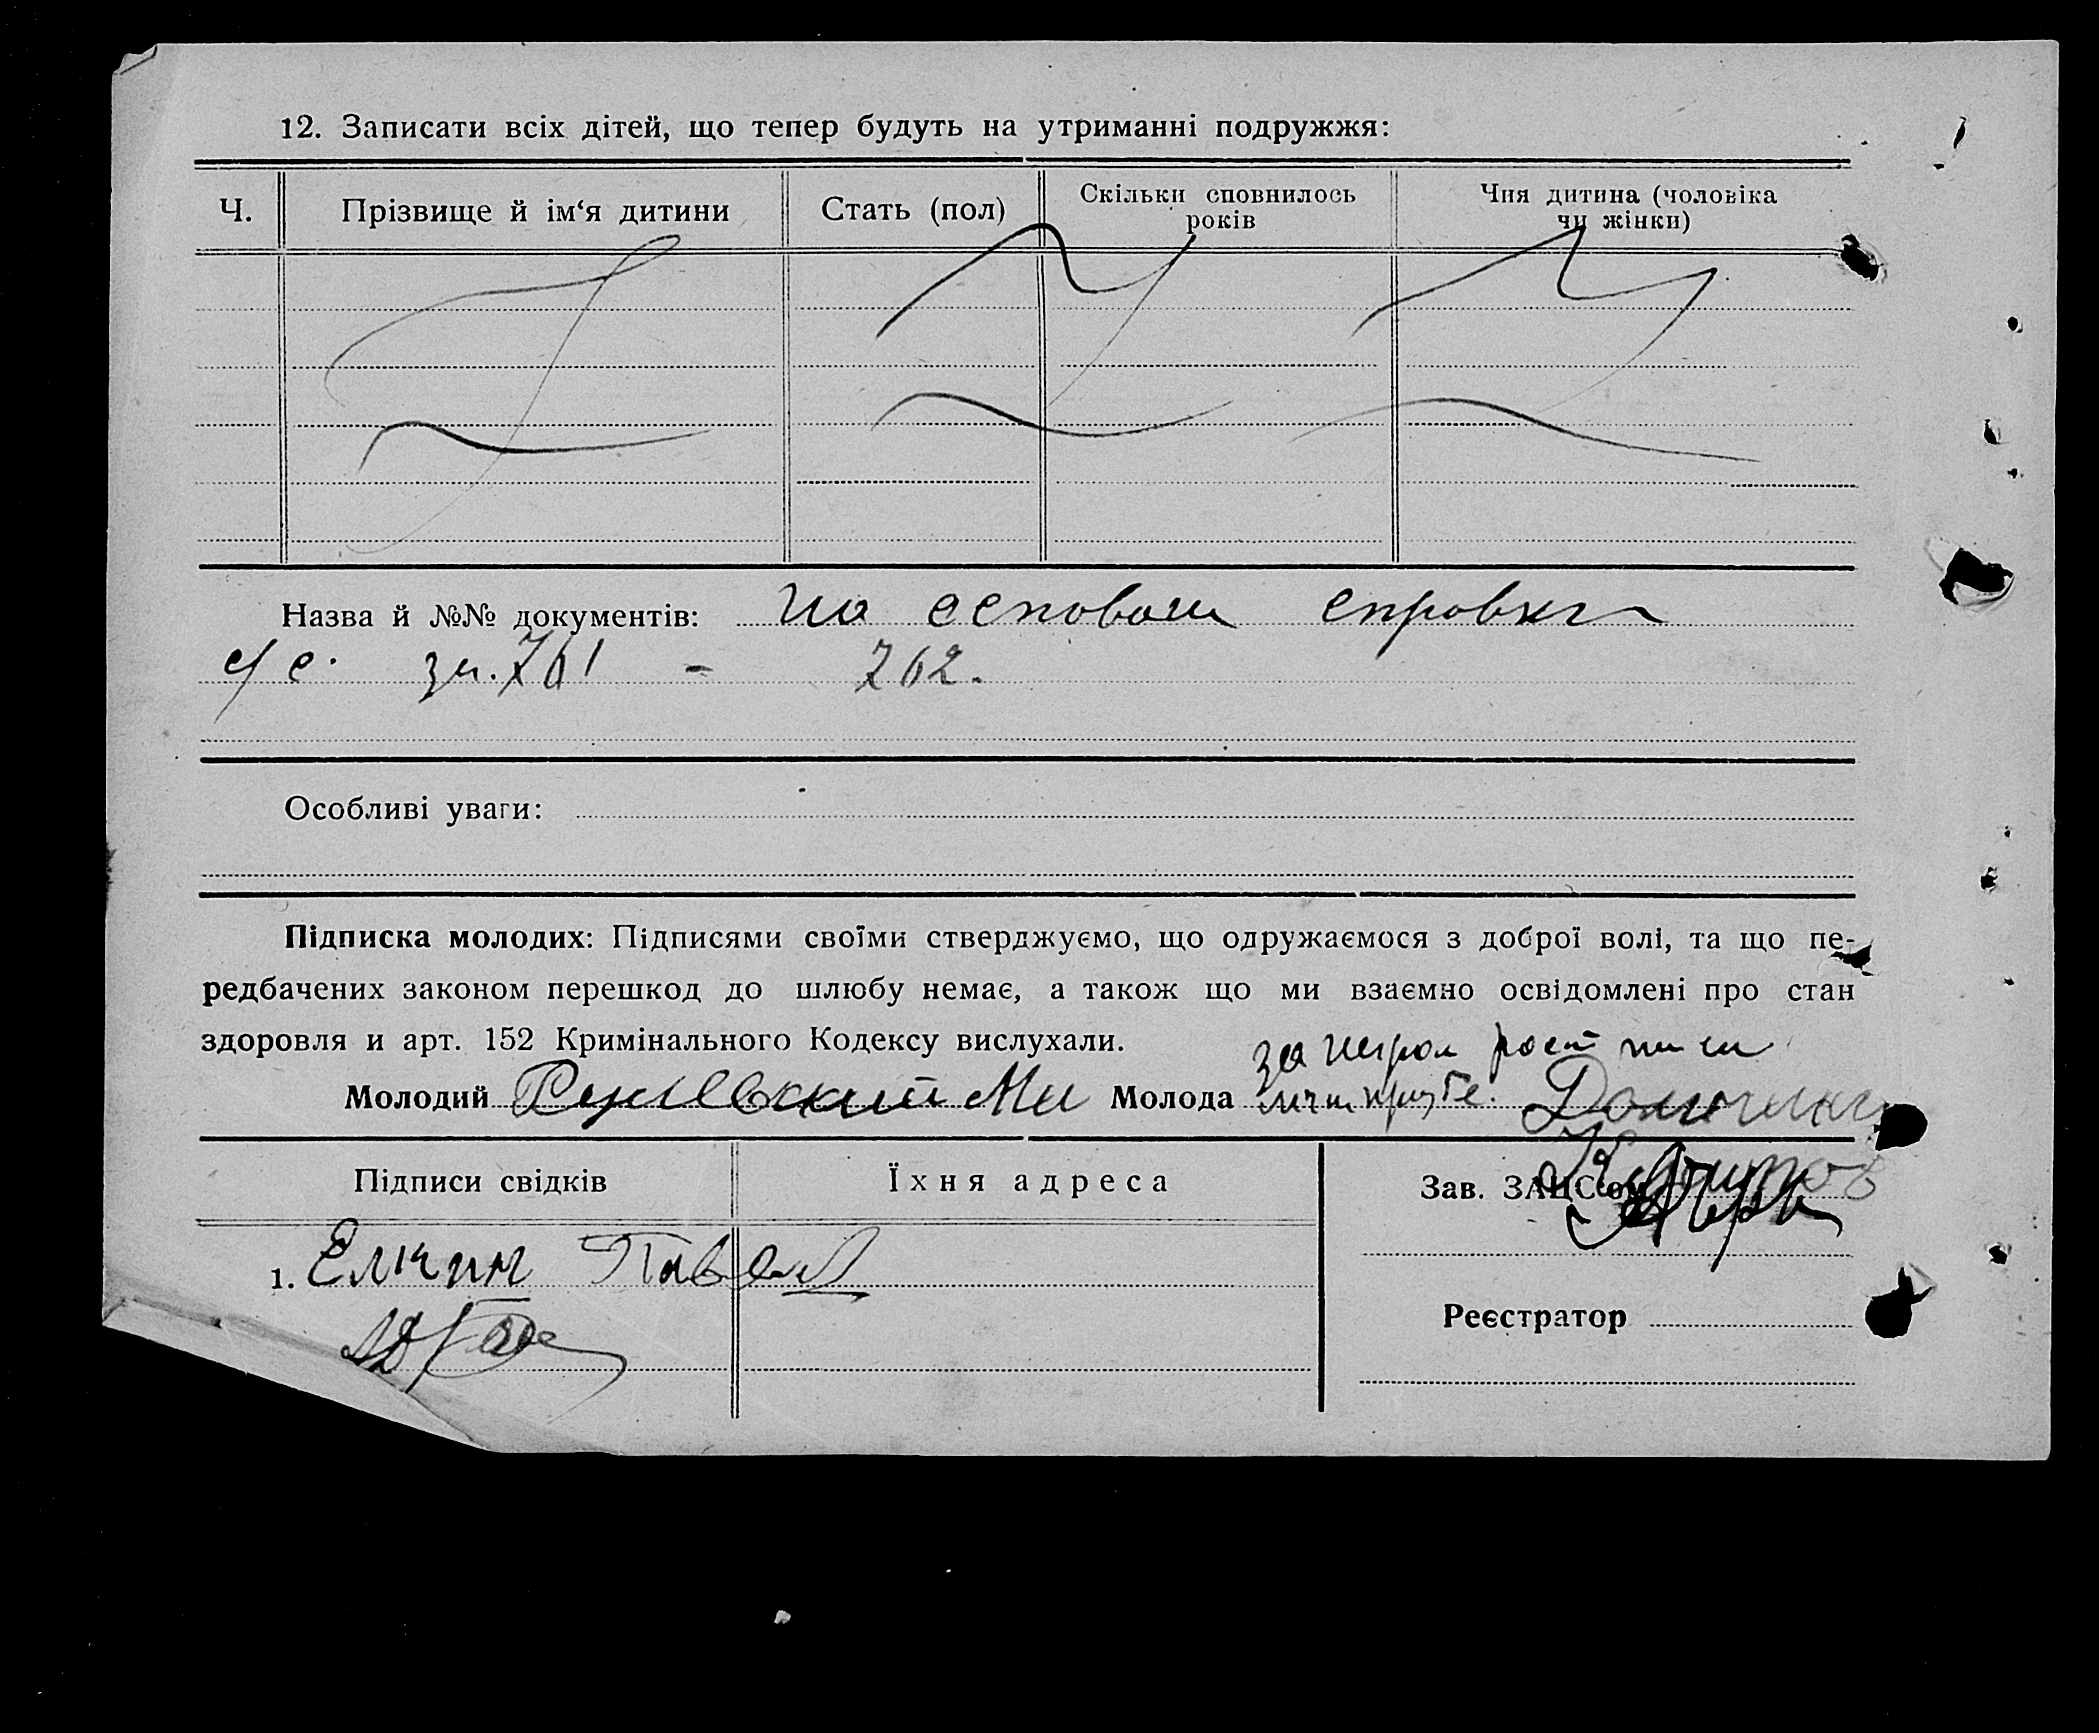 12. Записати всіх дітей, що тепер будуть на утриманні подружжя:
Ч. Прізвище й ім‘я дитини Стать (пол) Скільки сповнилось років Чия дитина (чоловіка чи жінки)
Назва й №№ документів: на основани справки
с/с. за. 761 - 762.
Особливі уваги:
Підписка молодих: Підписями своїми стверджуємо, що одружаємося з доброї волі, та що пе-
редбачених законом перешкод до шлюбу немає, а також що ми взаємно освідомлені про стан
здоровля и арт. 152 Кримінального Кодексу вислухали.
за
Молодий Молода
Підписи свідків Їхня адреса Зав. ЗАЦСом
1. Елкин Павел
Реєстратор